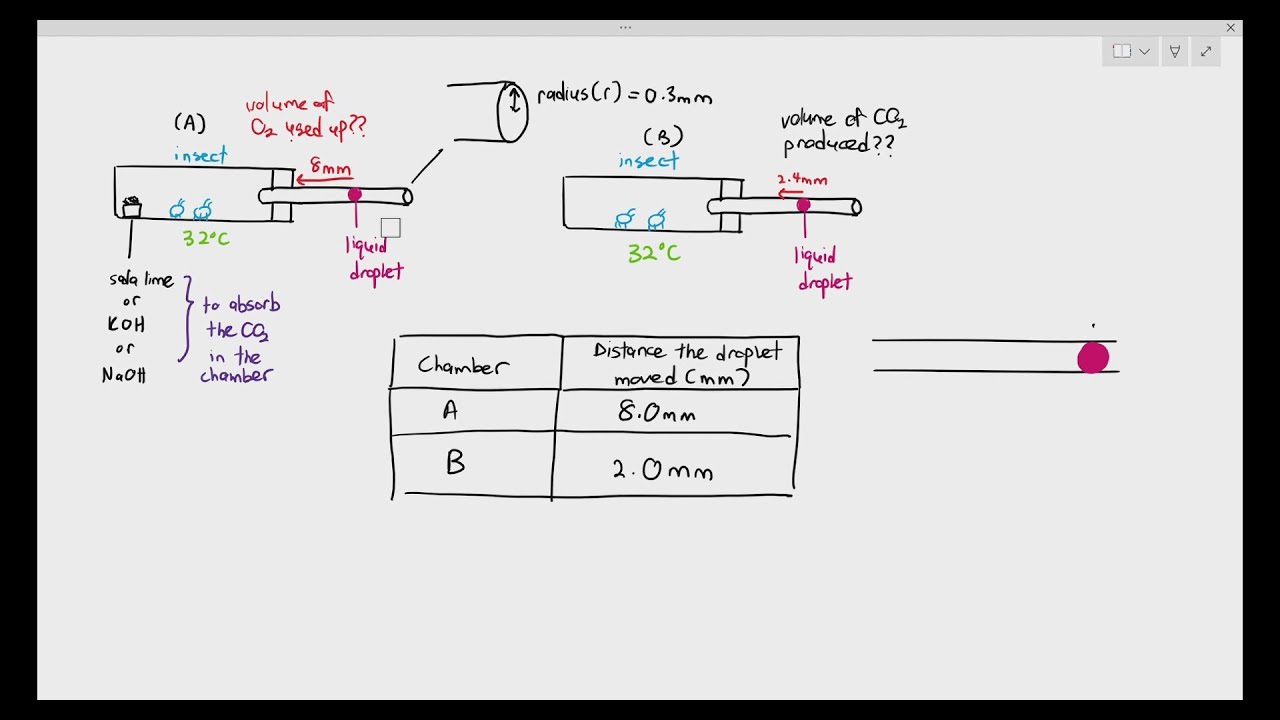 (A)
volume of
O2 used up??
insect
8mm
32°C
liquid
droplet
radius(r) = 0.3mm
(B)
insect
volume of CO2
produced??
2.4mm
32°C
liquid
droplet
soda lime
or
KOH
or
NaOH
to absorb
the CO2
in the
chamber
Chamber
Distance the droplet
moved (mm)
A
8.0mm
B
2.0mm